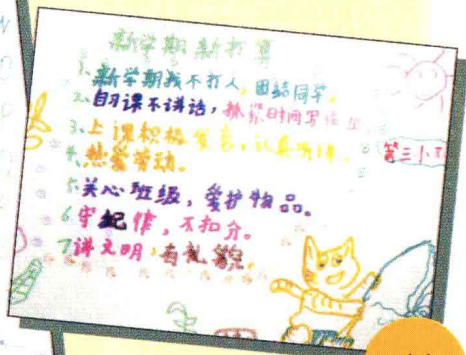 新学期 新打算
1、新学期我不打人,团结同学。
2、自习课不讲话,抓紧时间写作业。
3、上课积极发言,认真听讲。
4、热爱劳动。
5、关心班级,爱护物品。
6、守纪律,不扣分。
7、讲文明,有礼貌。
第三小